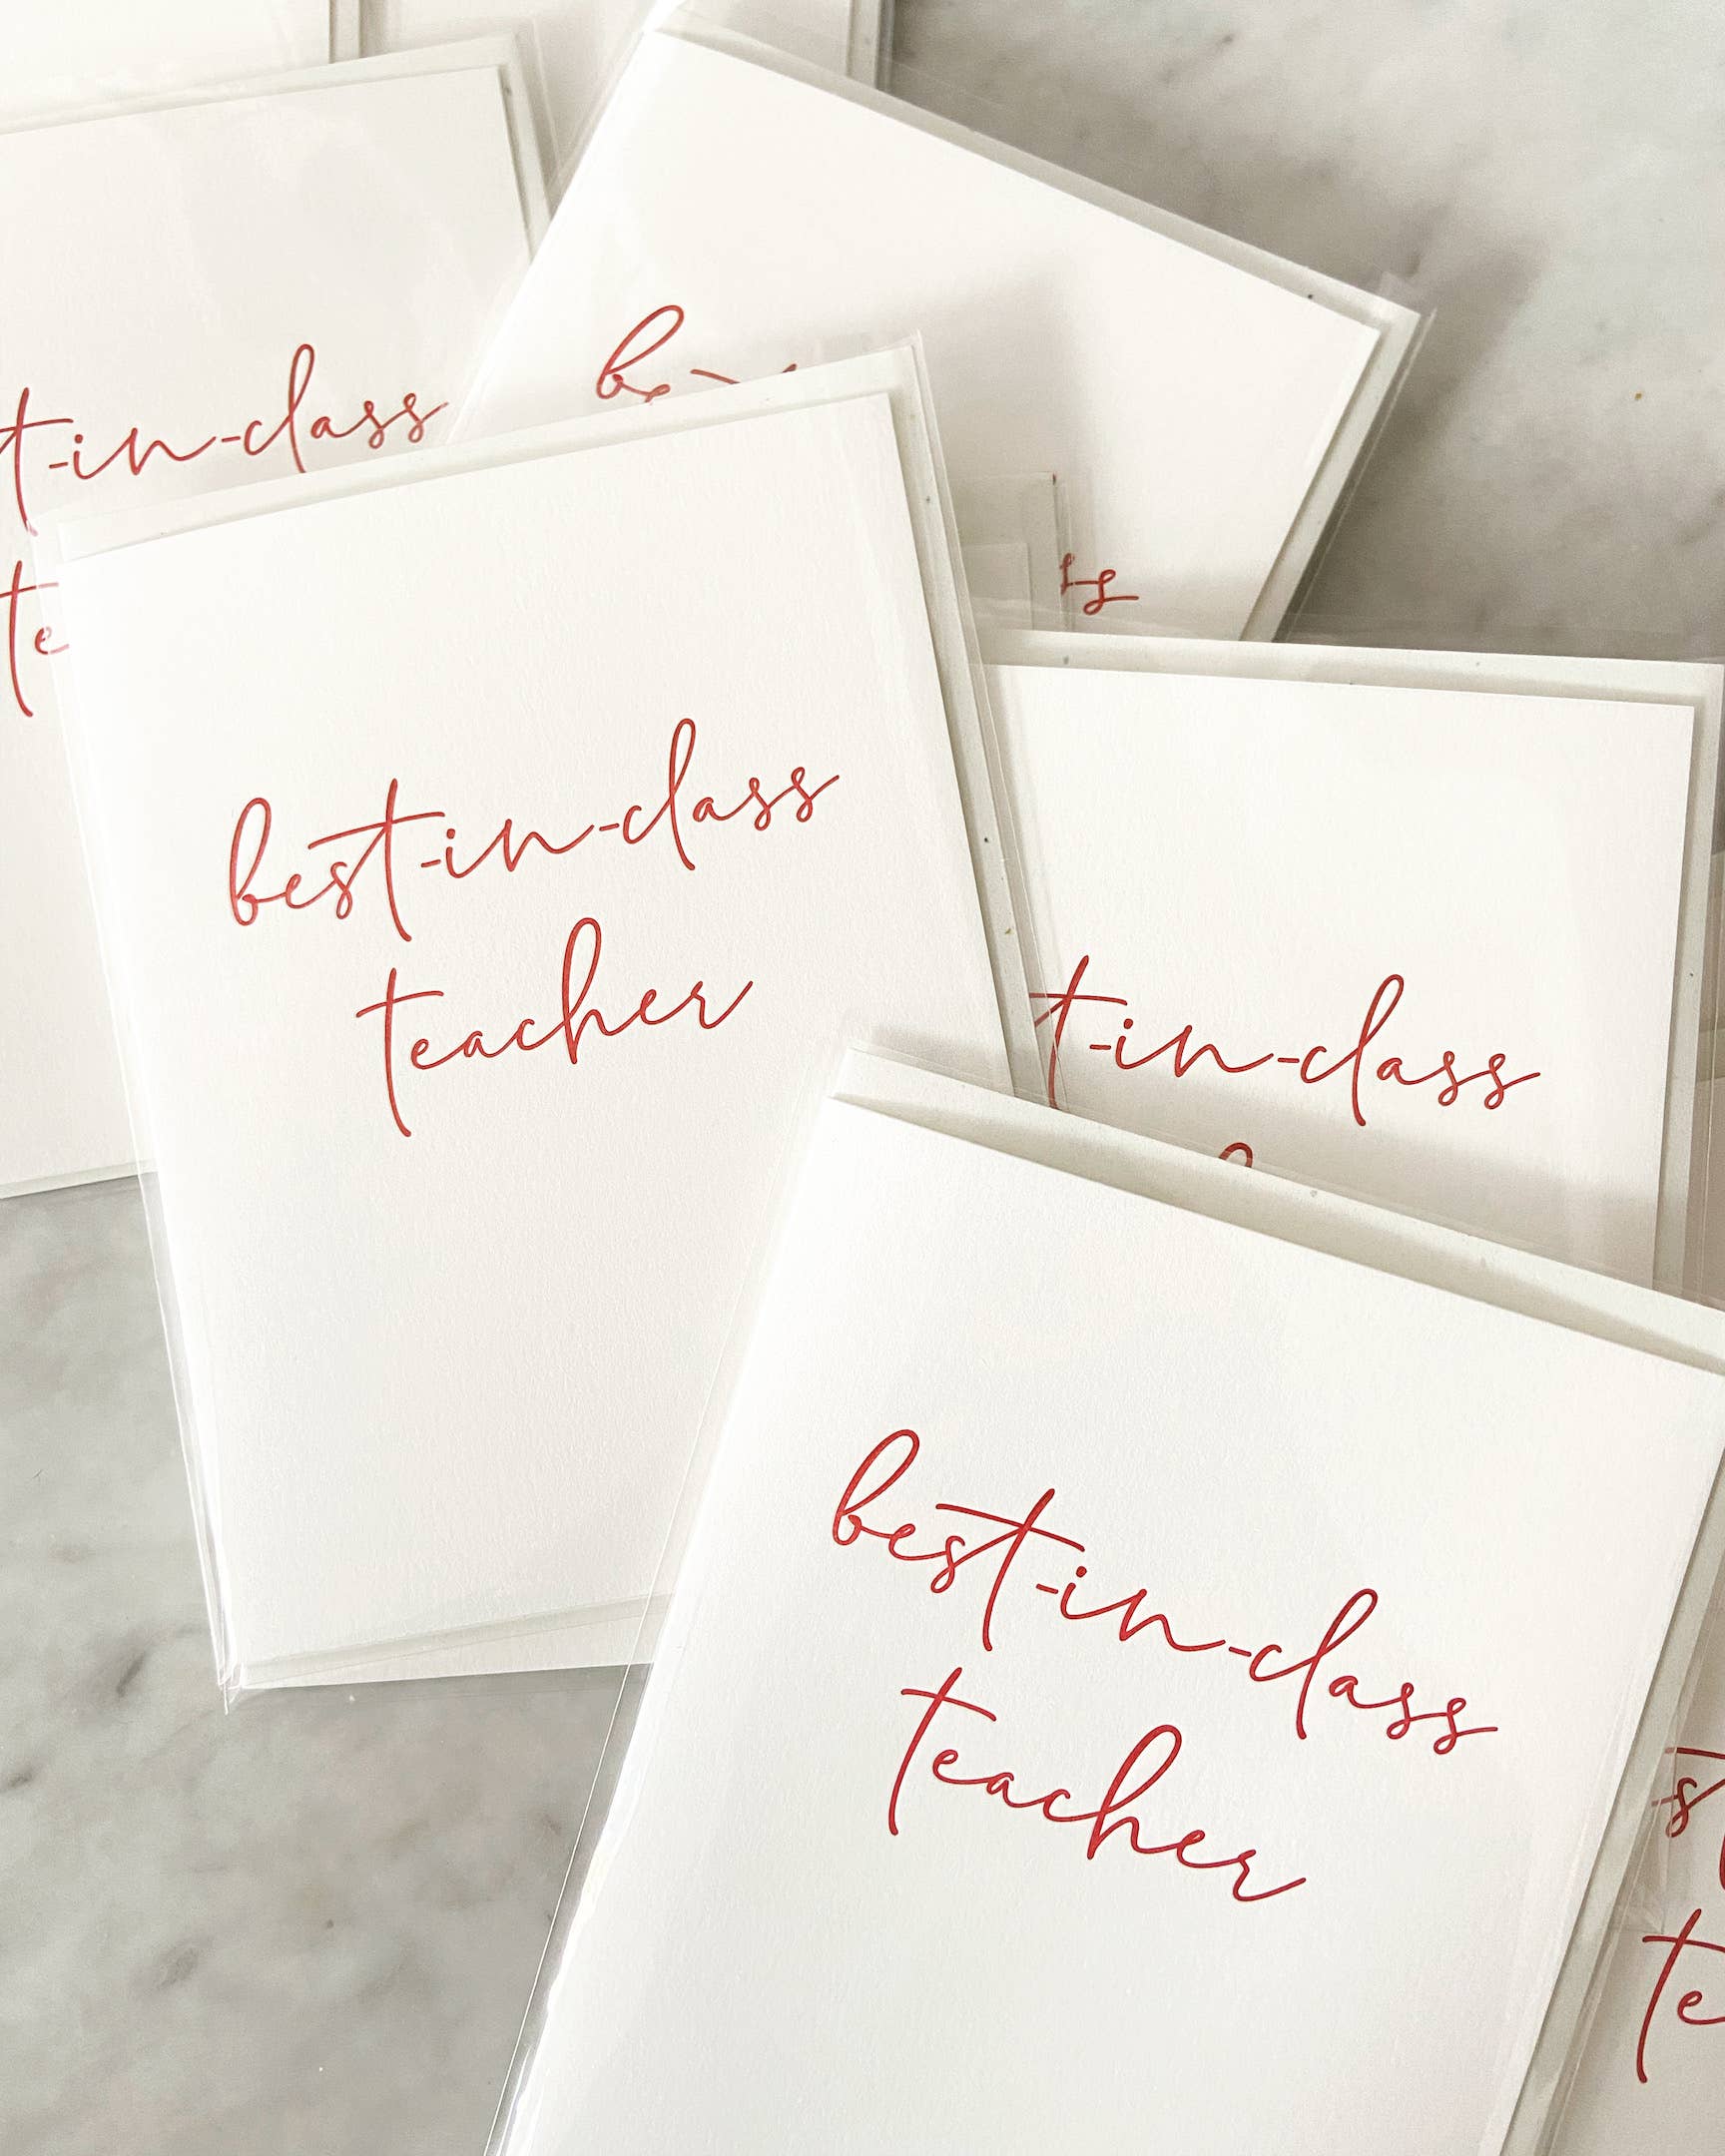 t-in-class
te
best-in-class
teacher
t-in-class
best-in-class
teacher
te